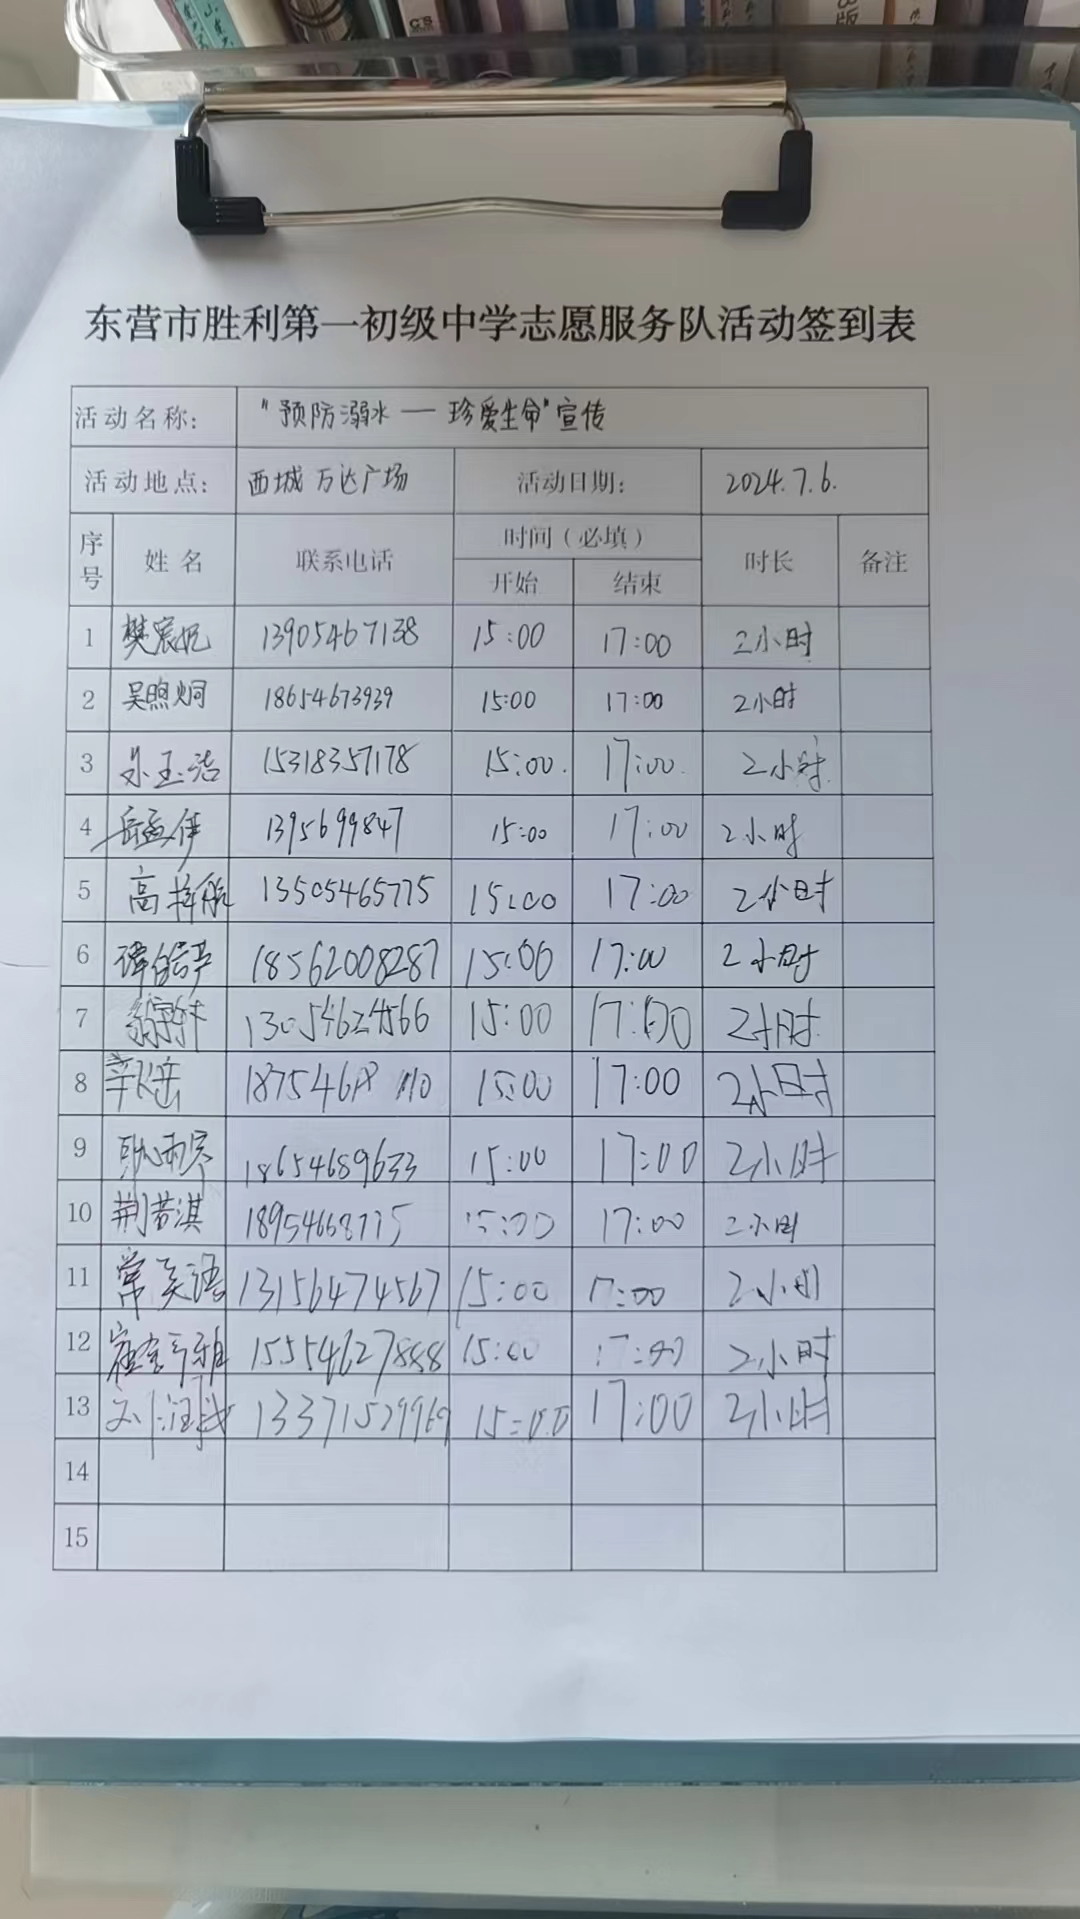 东营市胜利第一初级中学志愿服务队活动签到表
活动名称: "预防溺水 — 珍爱生命"宣传
活动地点: 西城万达广场 活动日期: 2024.7.6.
序号 姓名 联系电话 时间(必填) 时长 备注
开始 结束
1 樊宸妃 13905467138 15:00 17:00 2小时
2 吴煦炯 18654673939 15:00 17:00 2小时
3 孙玉洁 15318357178 15:00. 17:00. 2小时.
4 岳孟伊 1395699847 15:00 17:00 2小时
5 高梓航 13505465775 15:00 17:00 2小时
6 谭皓尹 18562008287 15:00 17:00 2小时
7 13054624566 15:00 17:00 2小时.
8 辛飞岳 15:00 17:00 2小时
9 耿雨 18654689633 15:00 17:00 2小时
10 荆若淇 18954668775 15:00 17:00 2小时
11 常美语 13156474567 15:00 17:00 2小时
12 15554627888 15:00 17:00 2小时
13 13371529969 15:00 17:00 2小时
14
15